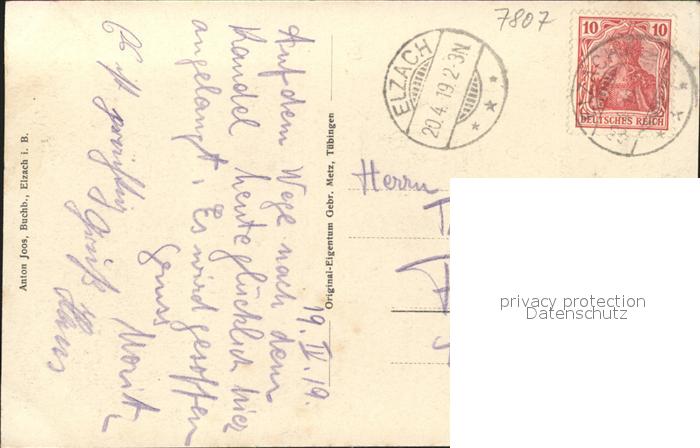 7807
ELZACH
20.4.19.2-3N.
10 10
DEUTSCHES REICH
ELZACH
Herrn
privacy protection
Datenschutz
19. IV. 19.
Auf dem Wege nach dem
Kandel heute glücklich hier
angelangt. Es wird gesoffen
Gruss
Moritz
Gruß
Hans
Original-Eigentum Gebr. Metz, Tübingen
Anton Joos, Buchb., Elzach i. B.